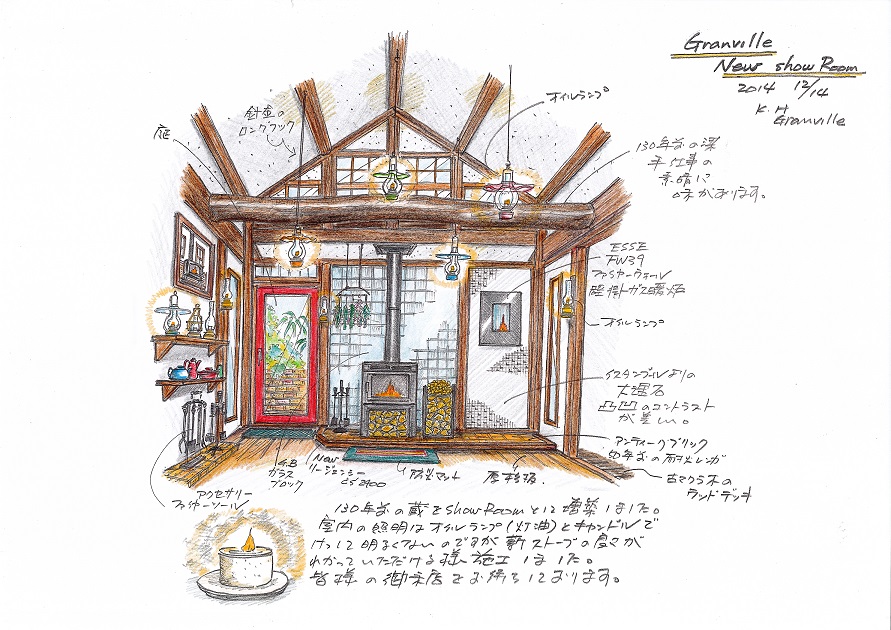 Granville
New show Room
2014 12/14
K. H
Granville
針金の
ロングフック
オイルランプ
庭
130年前の梁
手仕事の
素晴に
味があります。
ESSE
FW39
ファイヤーウォール
壁掛ガス暖炉
オイルランプ
イスタンブールよりの
大理石
凸凹のコントラスト
が美しい。
アンティークブリック
年前の耐火レンガ
古マクラ木の
ランドデッキ
アクセサリー
ファイヤーツール
G.B
ガラス
ブロック
New
リージェンシー
CS2400
防炎マット
130年前の蔵をShowRoomとして増築しました。
室内の照明はオイルランプ(灯油)とキャンドルで
けっして明るくないのですが薪ストーブの良さが
わかっていただける様施工しました。
皆様の御来店をお待ちしております。